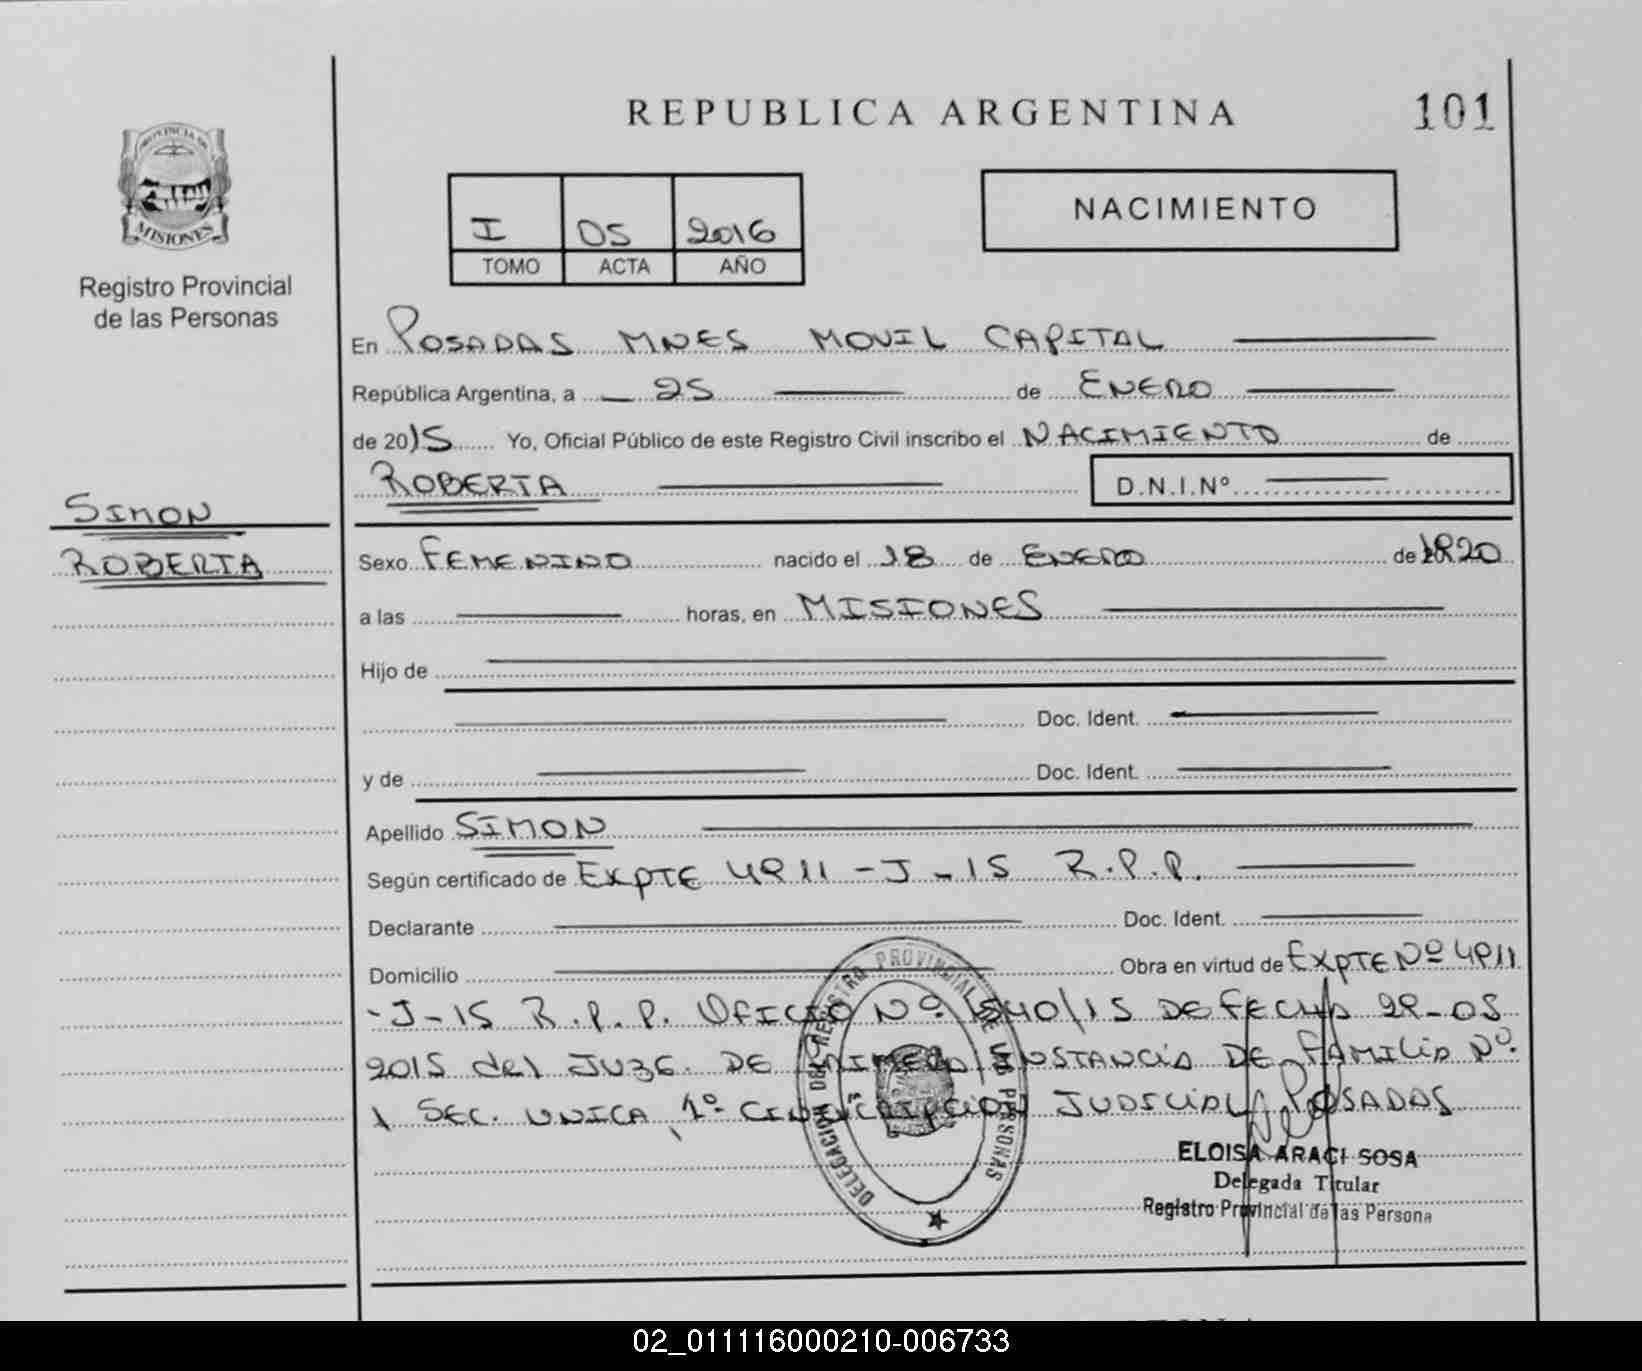 REPUBLICA ARGENTINA
101
PROVINCIA DE
MISIONES
Registro Provincial
de las Personas
I 05 2016
TOMO ACTA AÑO
NACIMIENTO
En POSADAS MNES MOVIL CAPITAL
República Argentina, a 25 de ENERO
de 2015 Yo, Oficial Público de este Registro Civil inscribo el NACIMIENTO de
ROBERTA D.N.I.Nº
SIMON
ROBERTA
Sexo FEMENINO nacido el 18 de ENERO de 1920
a las horas, en MISIONES
Hijo de
Doc. Ident.
y de Doc. Ident.
Apellido SIMON
Según certificado de EXPTE 4911-J-15 R.P.P.
Declarante Doc. Ident.
Domicilio Obra en virtud de EXPTE Nº 4911
-J-15 R.P.P. OFICIO Nº 1540/15 DE FECHA 29-05
2015 del JUZG. DE PRIMERA INSTANCIA DE FAMILIA Nº
1 SEC. UNICA, 1º CIRCUNSCRIPCION JUDICIAL POSADAS
DELEGACION DEL REGISTRO PROVINCIAL DE LAS PERSONAS
ELOISA ARACI SOSA
Delegada Titular
Registro Provincial de las Persona
02_011116000210-006733